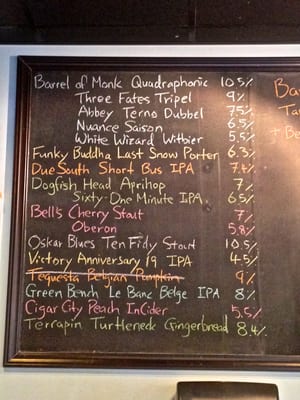 Barrel of Monk Quadraphonic 10.5%
Three Fates Tripel 9%
Abbey Terno Dubbel 7.5%
Nuance Saison 6.5%
White Wizard Witbier 5.5%
Funky Buddha Last Snow Porter 6.3%
Due South Short Bus IPA 7.4%
Dogfish Head Aprihop 7%
Sixty-One Minute IPA 6.5%
Bell's Cherry Stout 7%
Oberon 5.8%
Oskar Blues Ten Fidy Stout 10.5%
Victory Anniversary 19 IPA 4.5%
Tequesta Belgian Pumpkin 9%
Green Bench Le Banc Belge IPA 8%
Cigar City Peach InCider 5.5%
Terrapin Turtleneck Gingerbread 8.4%
+